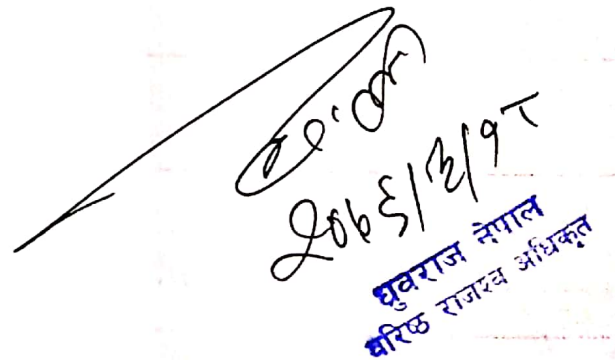 २०७६/३/१८
ध्रुवराज नेपाल
वरिष्ठ राजश्व अधिकृत